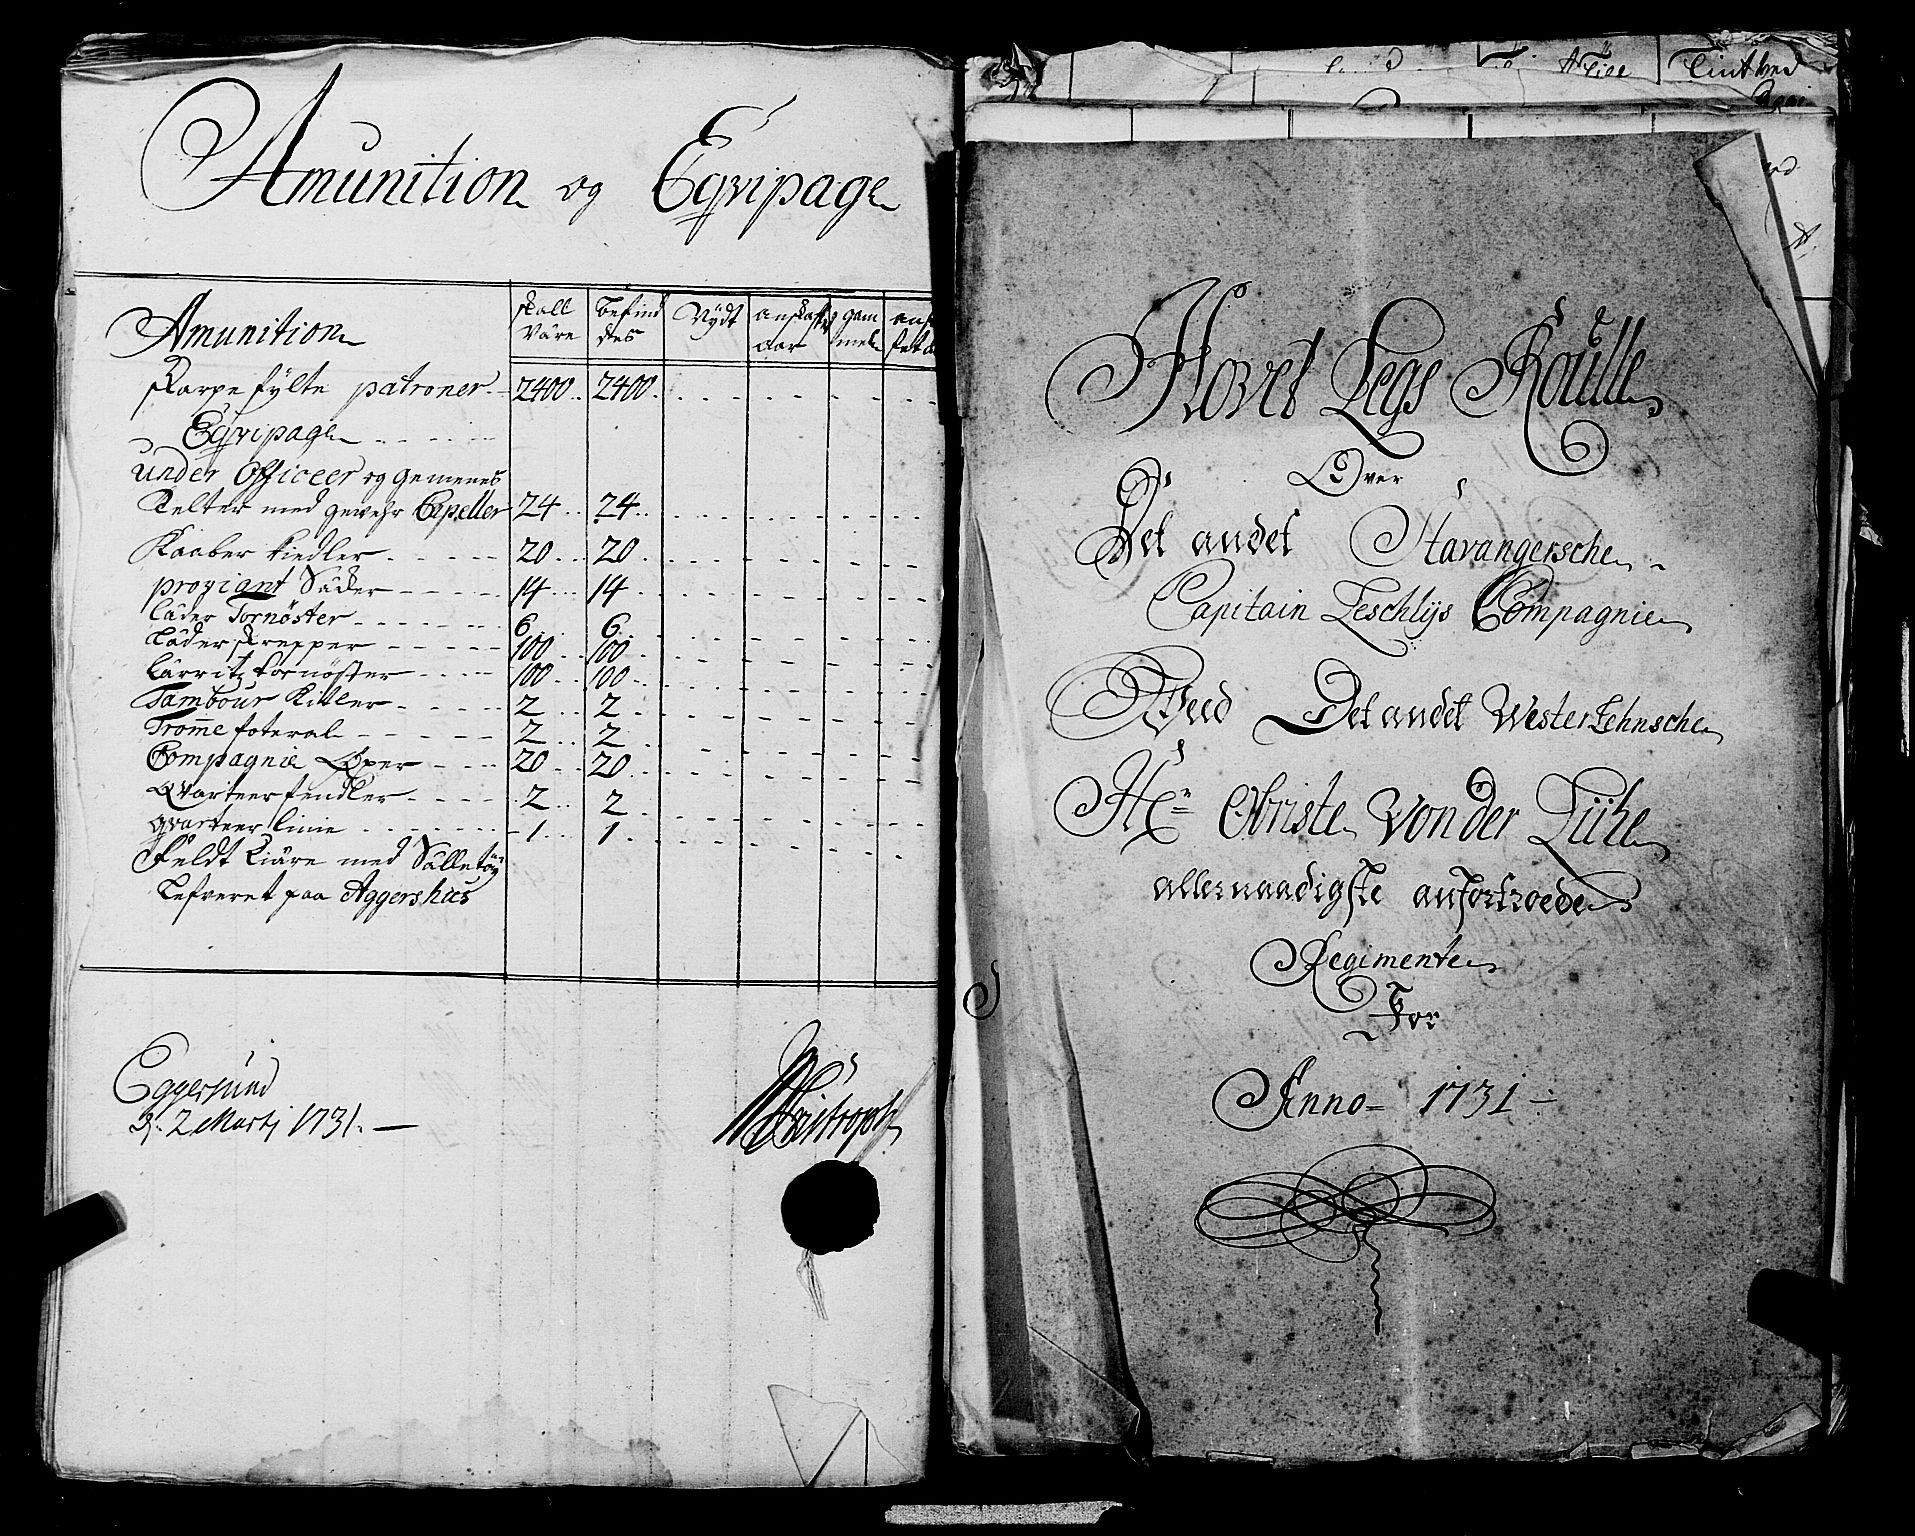 Amunition og Eqvipage
Amunition
skall være
befindes
Nÿdt
anskaffed aar
gammel
skarpe fÿlte patroner 2400 2400
Eqvipage
under Officeer og gemenes
Telter med gewehr Capeller 24 24
Kaaber kiedler 20 20
proviant Säcker 14 14
läder Tornöster 6 6
Läder skrepper 100 100
Lärritz tornöster 100 100
Tambour Kitler 2 2
Tromme foteral 2 2
Compagnie Öxer 20 20
Qvarteer fendler 2 2
qvarteer linie 1 1
Feldt Kiäre med Sälletöÿ
Lefveret paa Aggershuus
Eggersund
d. 2 Martj 1731.
Hovet Legs Roulle
Over
Det andet Stavangersche
Capitain Teschlÿs Compagnie
Ved Det andet Westerlehnsche
Hr Obriste Von der Lühe
allernaadigste anfortroede
Regimente
For
Anno 1731